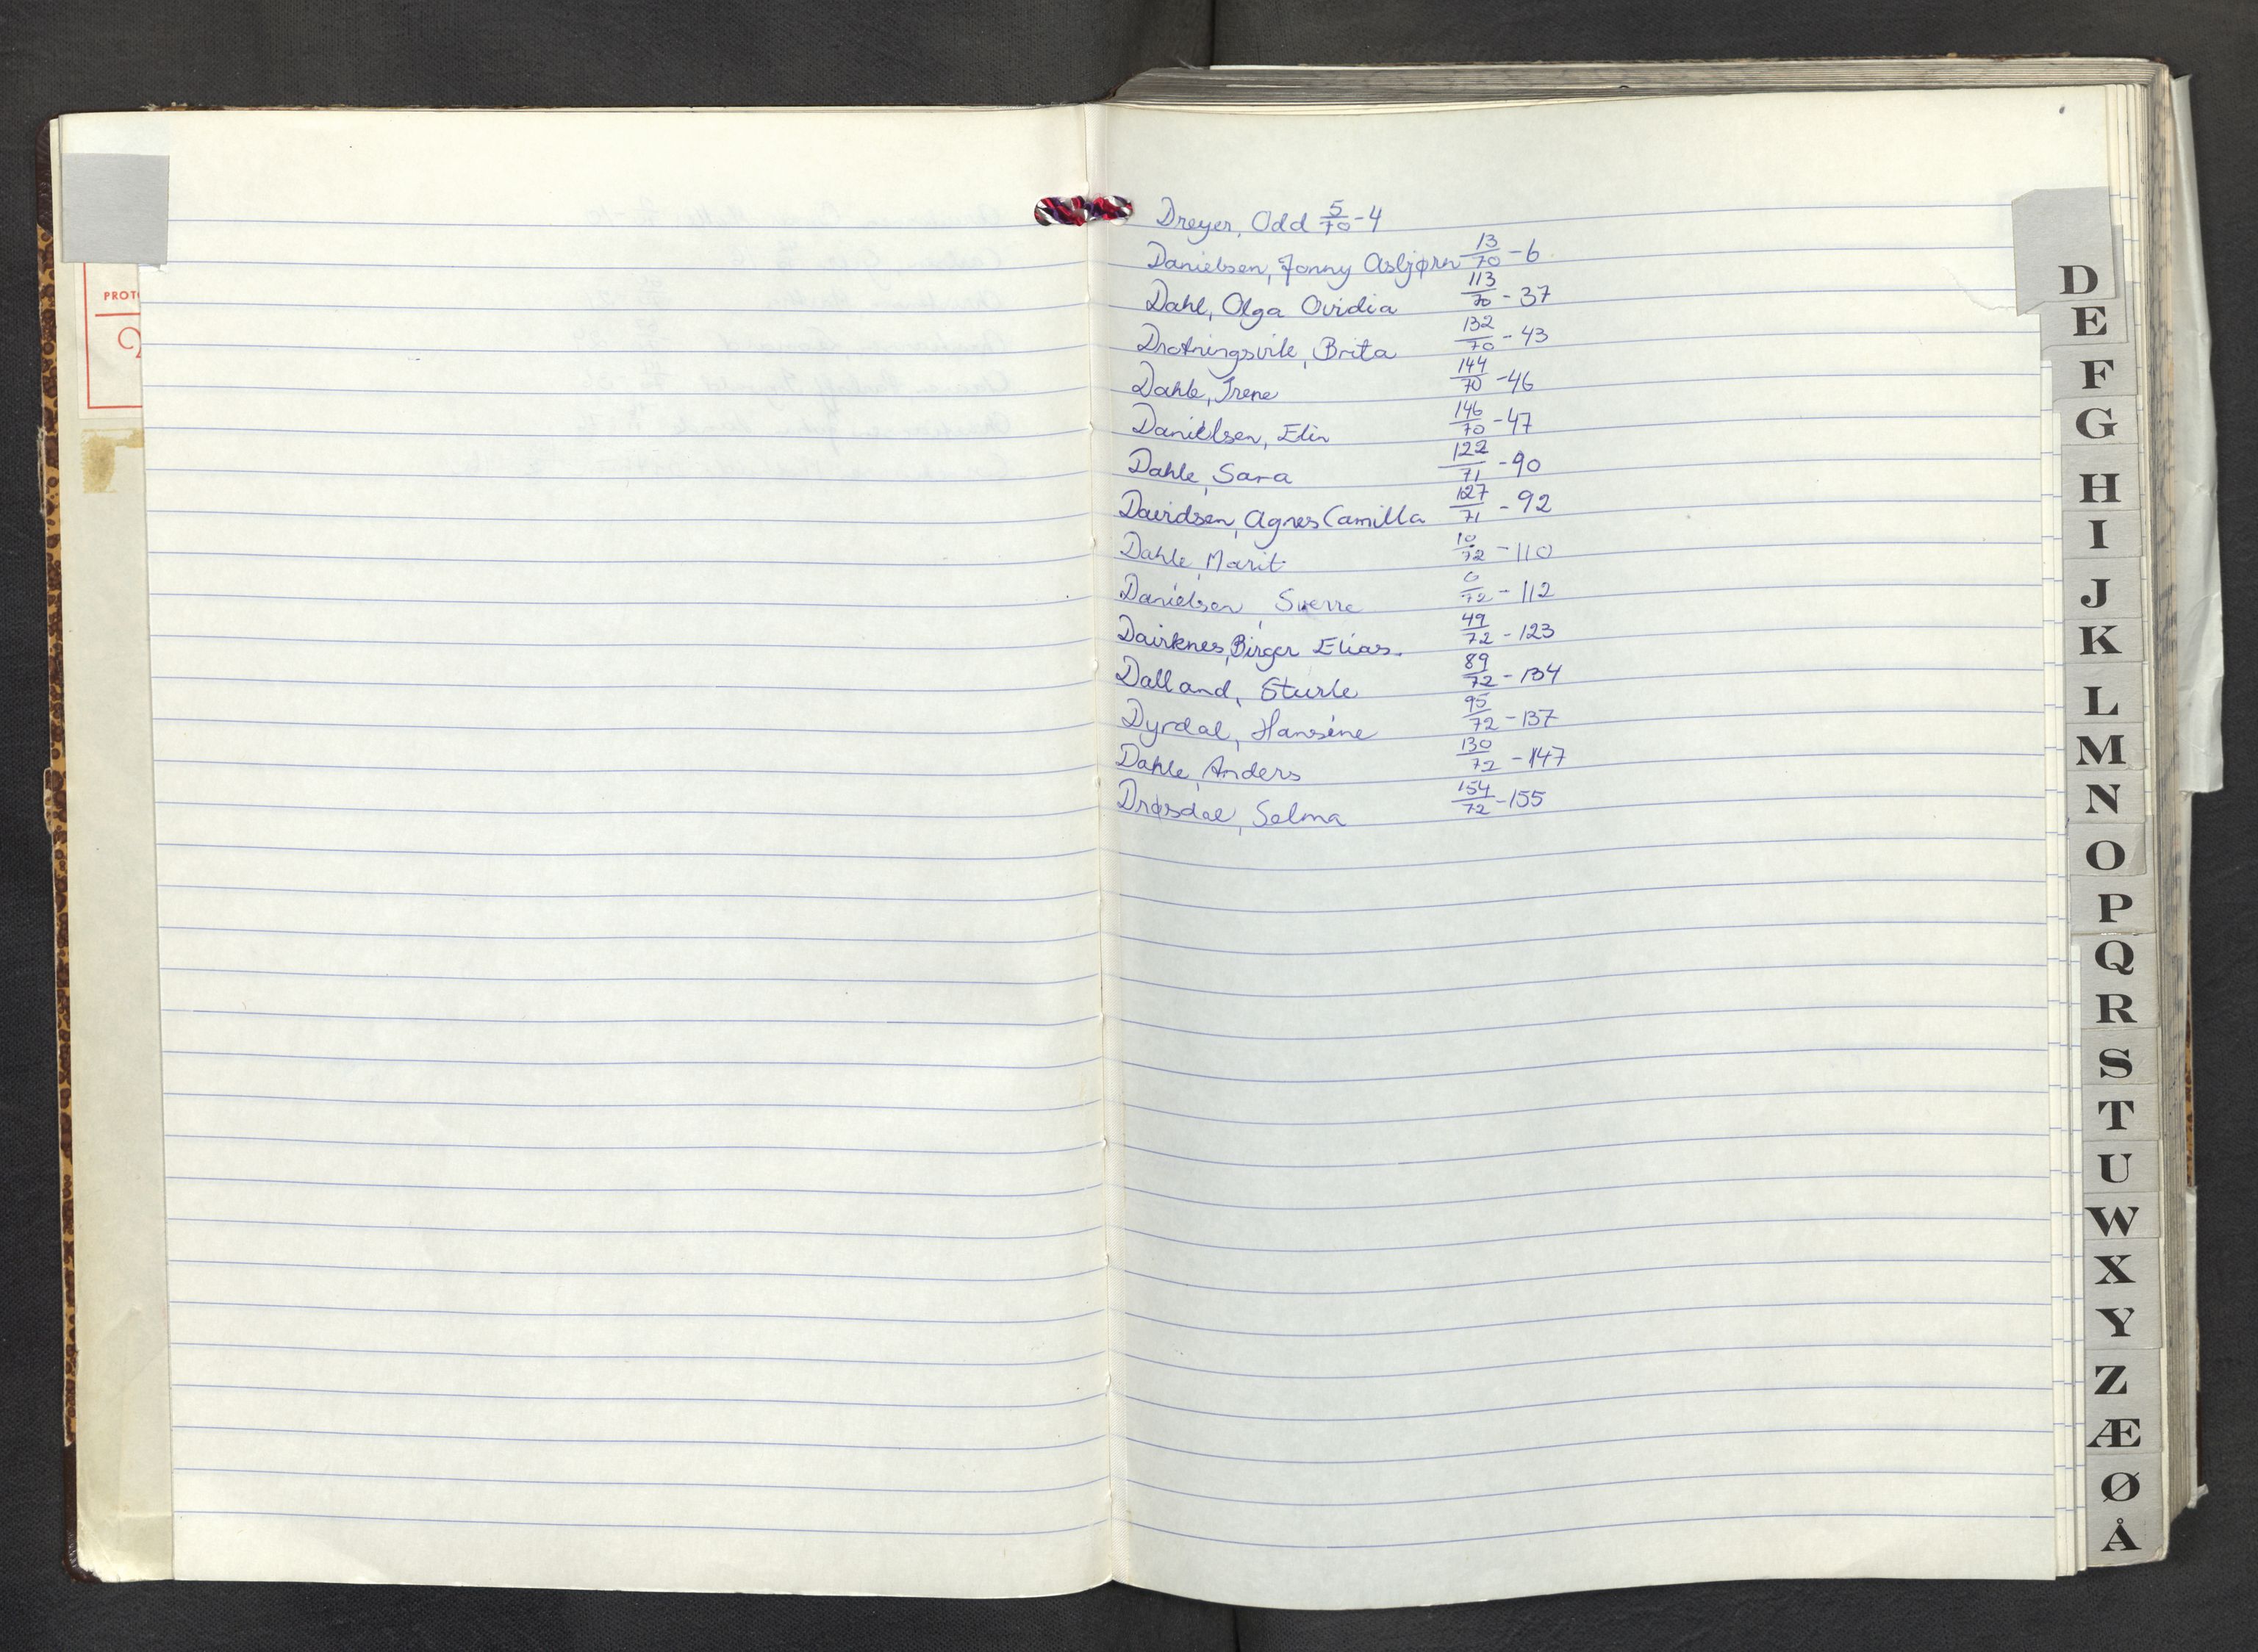 PROTO
Dreyer, Odd 5/70 - 4
Danielsen, Jonny Asbjørn 13/70 - 6
Dahl, Olga Ovidia 113/70 - 37
Drotningsvik, Brita 132/70 - 43
Dahle, Irene 144/70 - 46
Danielsen, Elin 146/70 - 47
Dahle, Sara 122/71 - 90
Davidsen, Agnes Camilla 127/71 - 92
Dahle, Marit 10/72 - 110
Danielsen, Sverre 0/72 - 112
Davknes, Birger Elias. 49/72 - 123
Dalland, Sturle 89/72 - 134
Dyrdal, Hansine 95/72 - 137
Dahle, Anders 130/72 - 147
Drøsdal, Selma 154/72 - 155
D
E
F
G
H
I
J
K
L
M
N
O
P
Q
R
S
T
U
W
X
Y
Z
Æ
Ø
Å